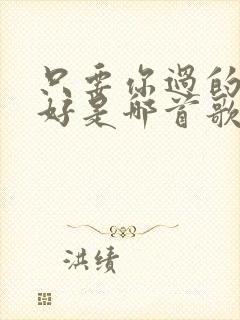 只要你过的
好是哪首歌
洪绩